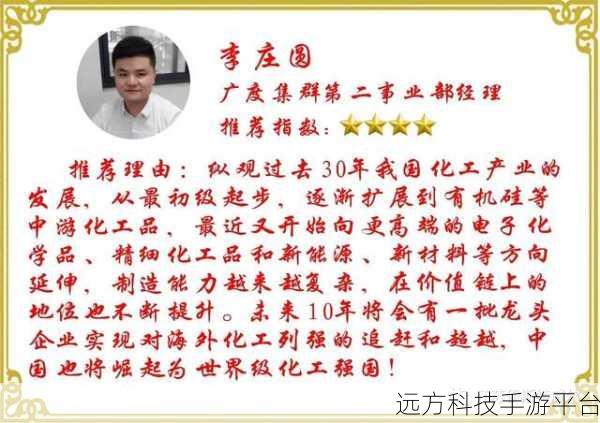 李庄圆
广度集群第二事业部经理
推荐指数：
推荐理由：纵观过去30年我国化工产业的
发展，从最初级起步，逐渐扩展到有机硅等
中游化工品，最近又开始向更高端的电子化
学品、精细化工品和新能源、新材料等方向
延伸，制造能力越来越复杂，在价值链上的
地位也不断提升。未来10年将会有一批龙头
企业实现对海外化工列强的追赶和超越，中
国也将崛起为世界级化工强国！
远方科技手游平台